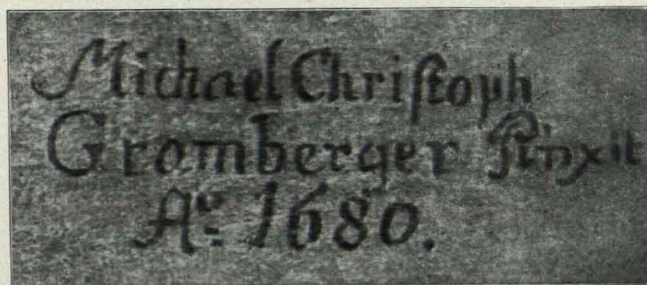 Michael Chriſtoph
Gromberger Pinxit
Aº. 1680.